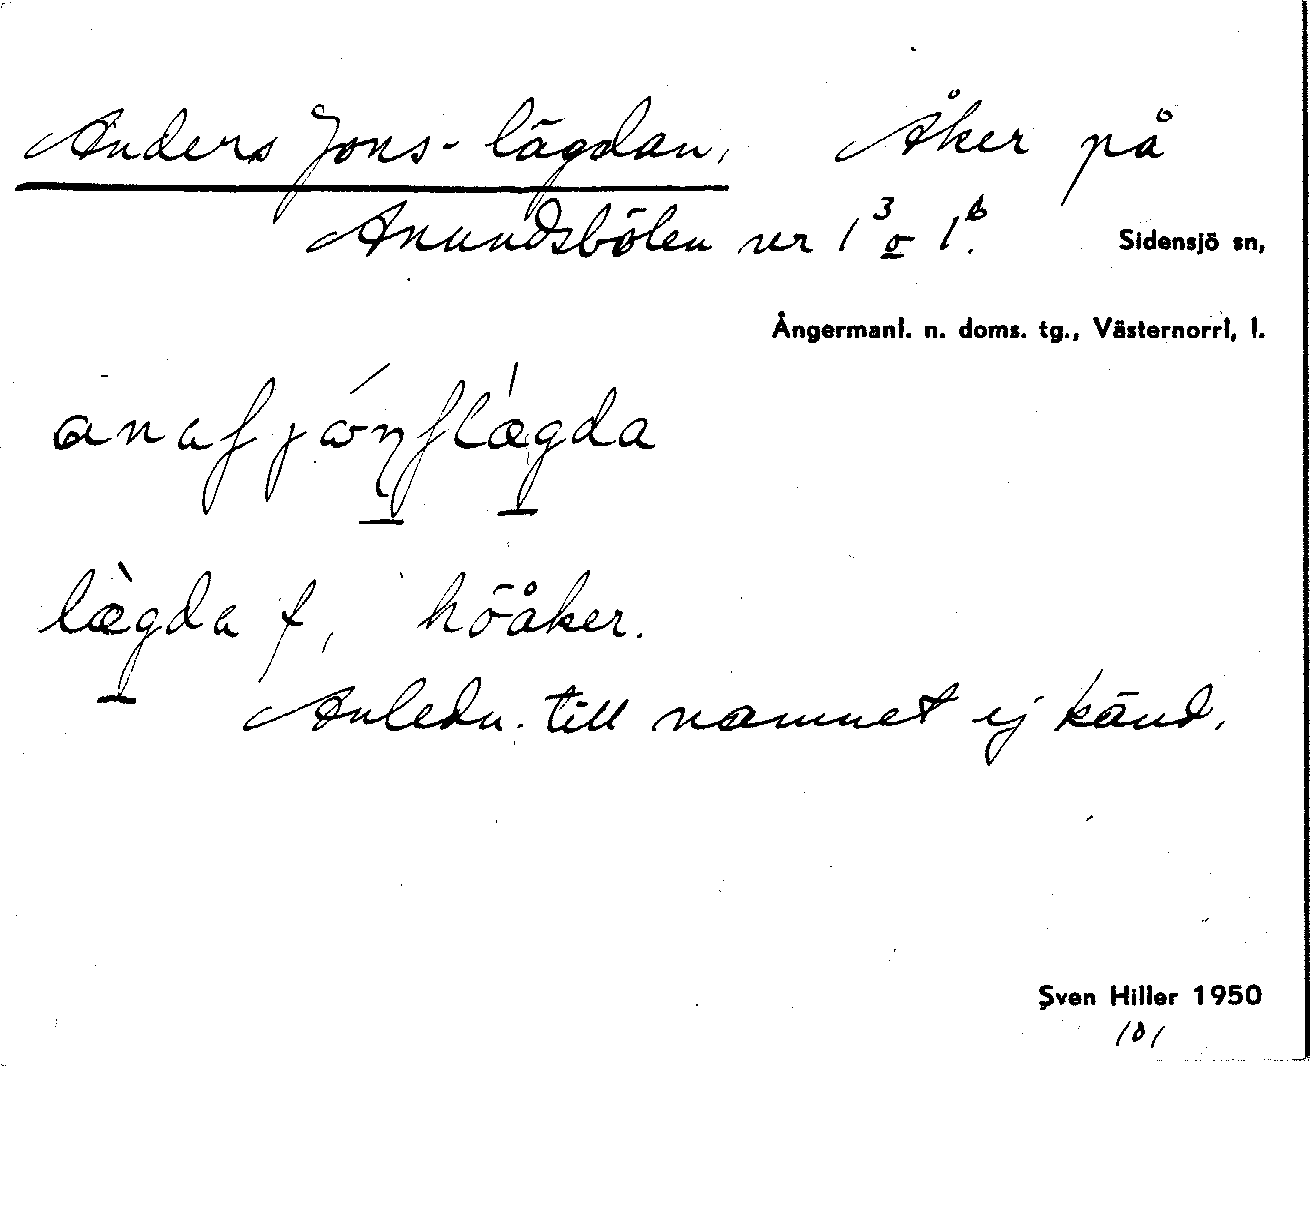 Anders Jons-lägdan, Åker på
Anundsbölen nr 1³ o 1⁶.
Sidensjö sn,
Ångermanl. n. doms. tg., Västernorrl. l.
lægda f, höåker.
Anledn. till namnet ej känd.
Sven Hiller 1950
101